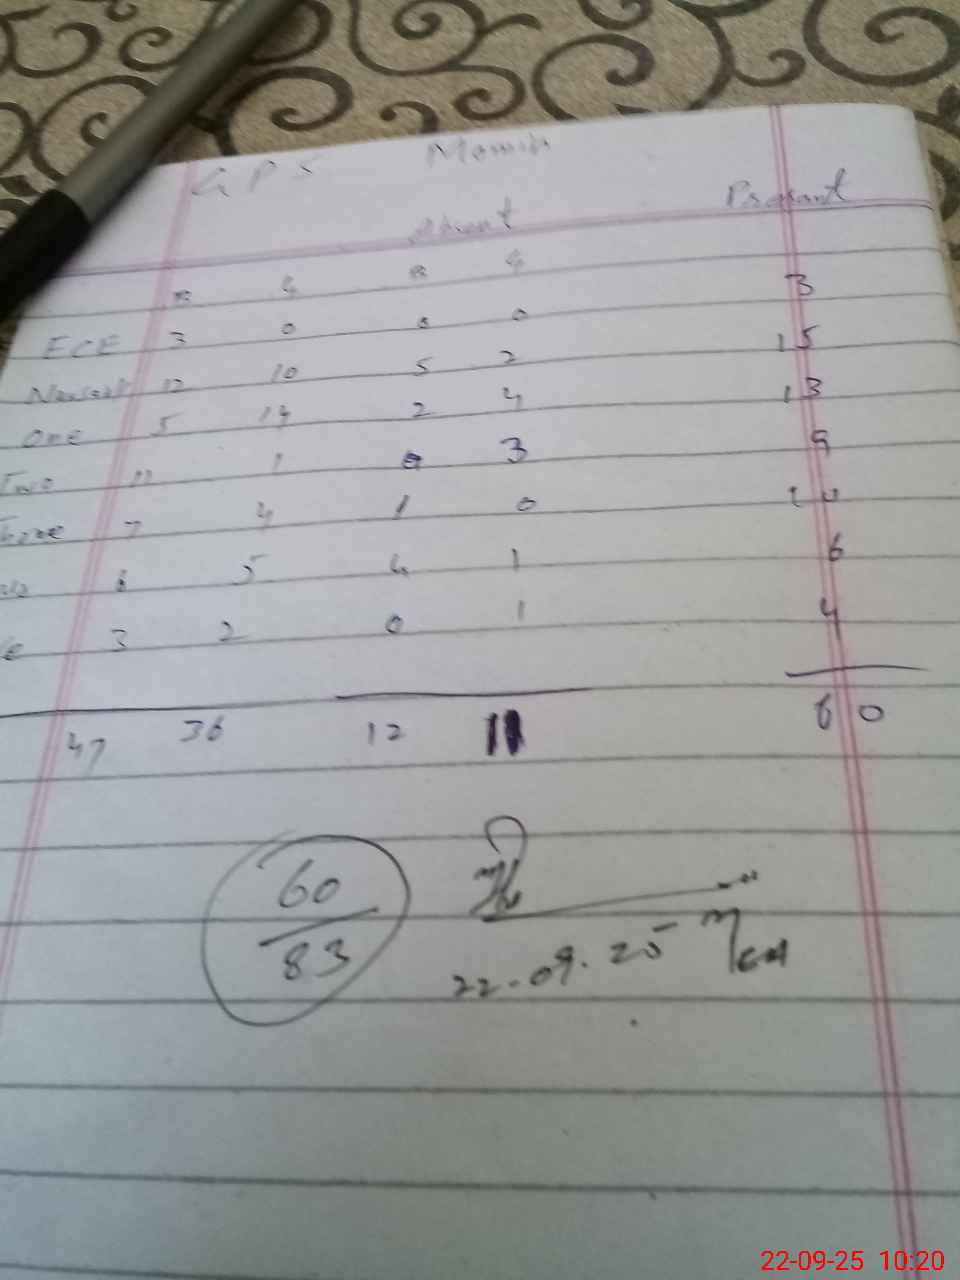 GPS Momin
Absent Prasant
B G B G
ECE 3 0 0 0 3
12 10 5 2 15
One 5 14 2 4 13
Two 11 1 0 3 9
Three 7 4 1 0 10
6 5 4 1 6
3 2 0 1 4
47 36 12 11 60
60
83
22-09-25
22-09-25 10:20